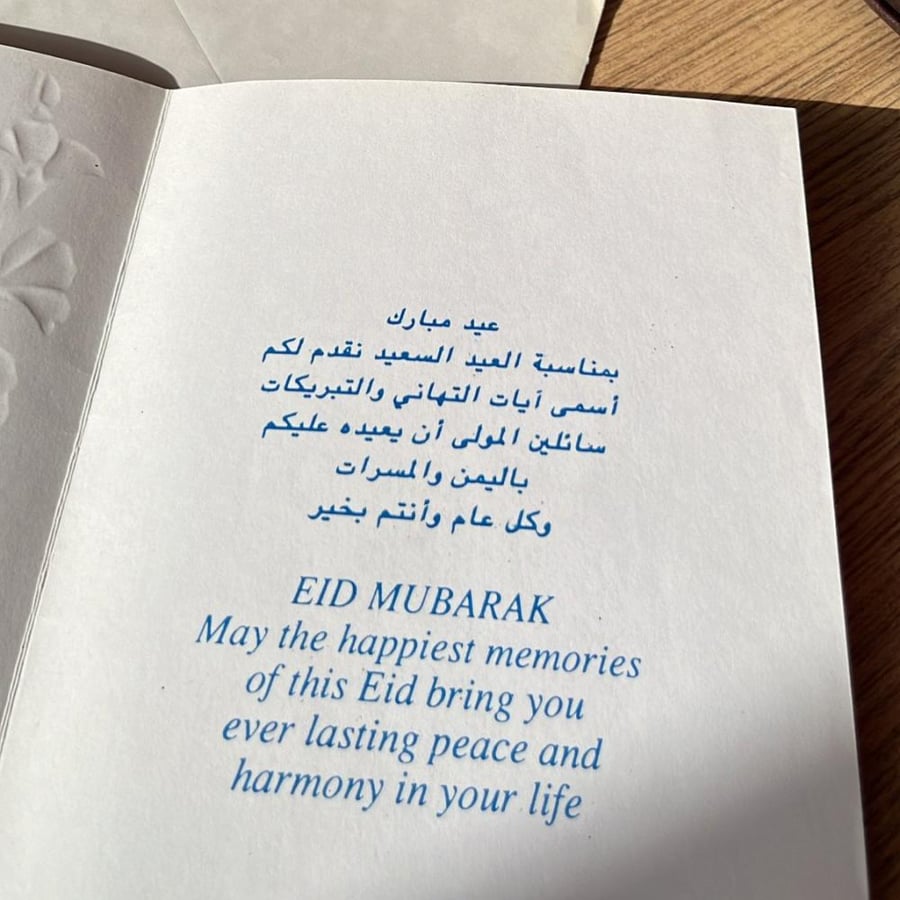 عيد مبارك
بمناسبة العيد السعيد نقدم لكم
أسمى آيات التهاني والتبريكات
سائلين المولى أن يعيده عليكم
باليمن والمسرات
وكل عام وأنتم بخير
EID MUBARAK
May the happiest memories
of this Eid bring you
ever lasting peace and
harmony in your life